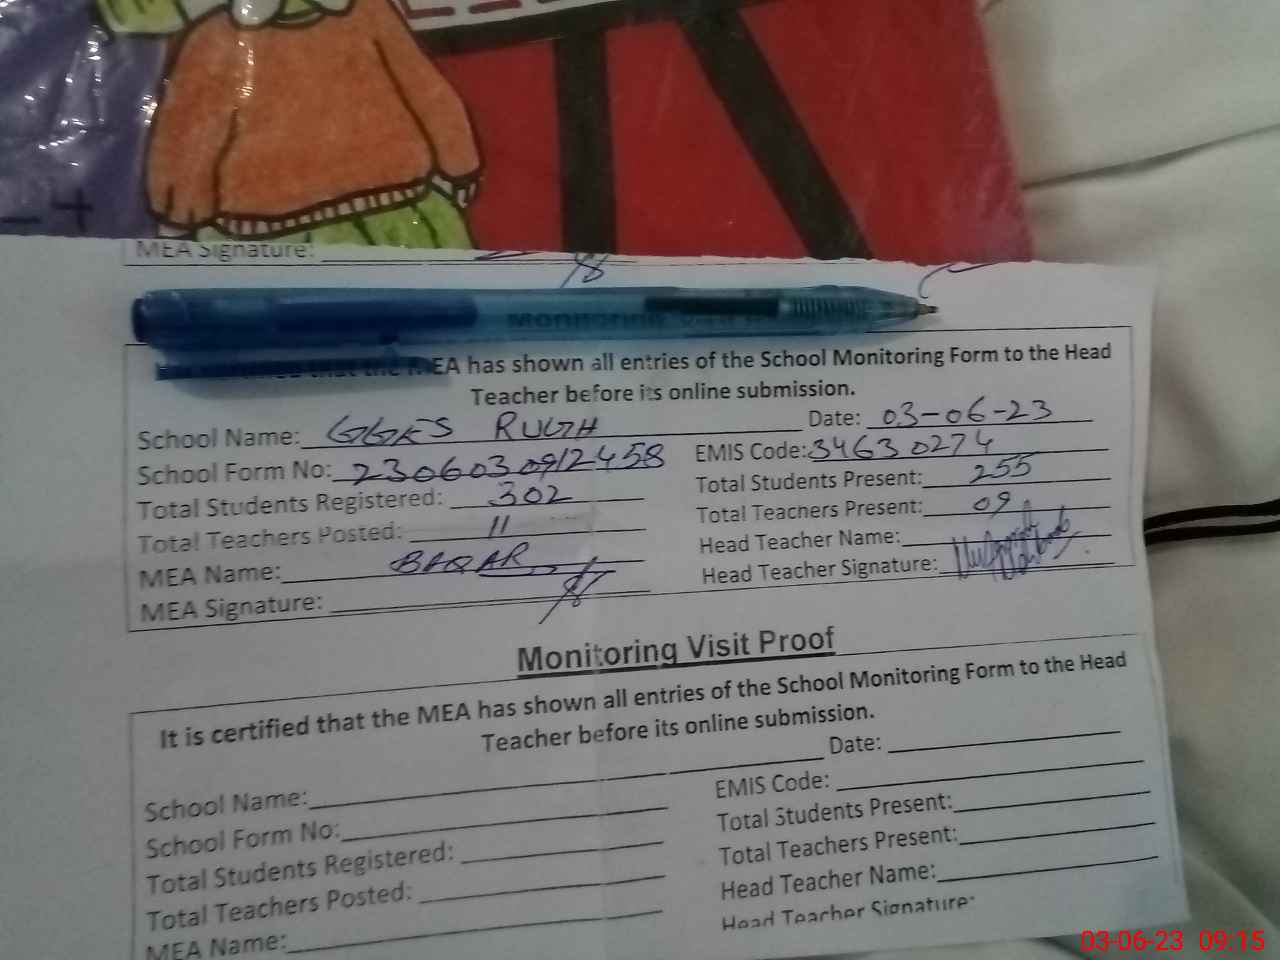 MEA Signature:
MEA has shown all entries of the School Monitoring Form to the Head
Teacher before its online submission.
School Name: GGES RUGH Date: 03-06-23
School Form No: 2306030912458 EMIS Code: 34630274
Total Students Registered: 302 Total Students Present: 255
Total Teachers Posted: 11 Total Teachers Present: 09
MEA Name: BAQAR Head Teacher Name:
MEA Signature: Head Teacher Signature:
Monitoring Visit Proof
It is certified that the MEA has shown all entries of the School Monitoring Form to the Head
Teacher before its online submission.
School Name: Date:
School Form No: EMIS Code:
Total Students Registered: Total Students Present:
Total Teachers Posted: Total Teachers Present:
MEA Name: Head Teacher Name:
Head Teacher Signature:
03-06-23 09:15